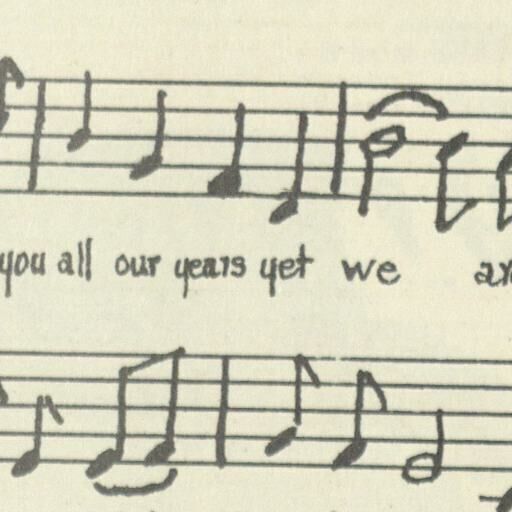 you all our years yet we